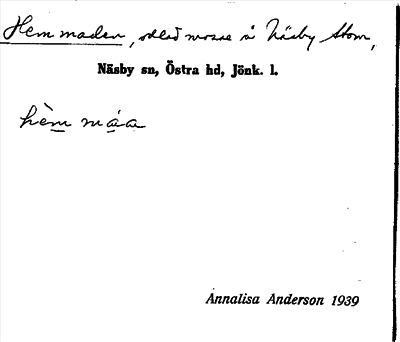 Hemmaden, odlad mosse å Näsby Stom,
Näsby sn, Östra hd, Jönk. l.
hèm máa
Annalisa Anderson 1939